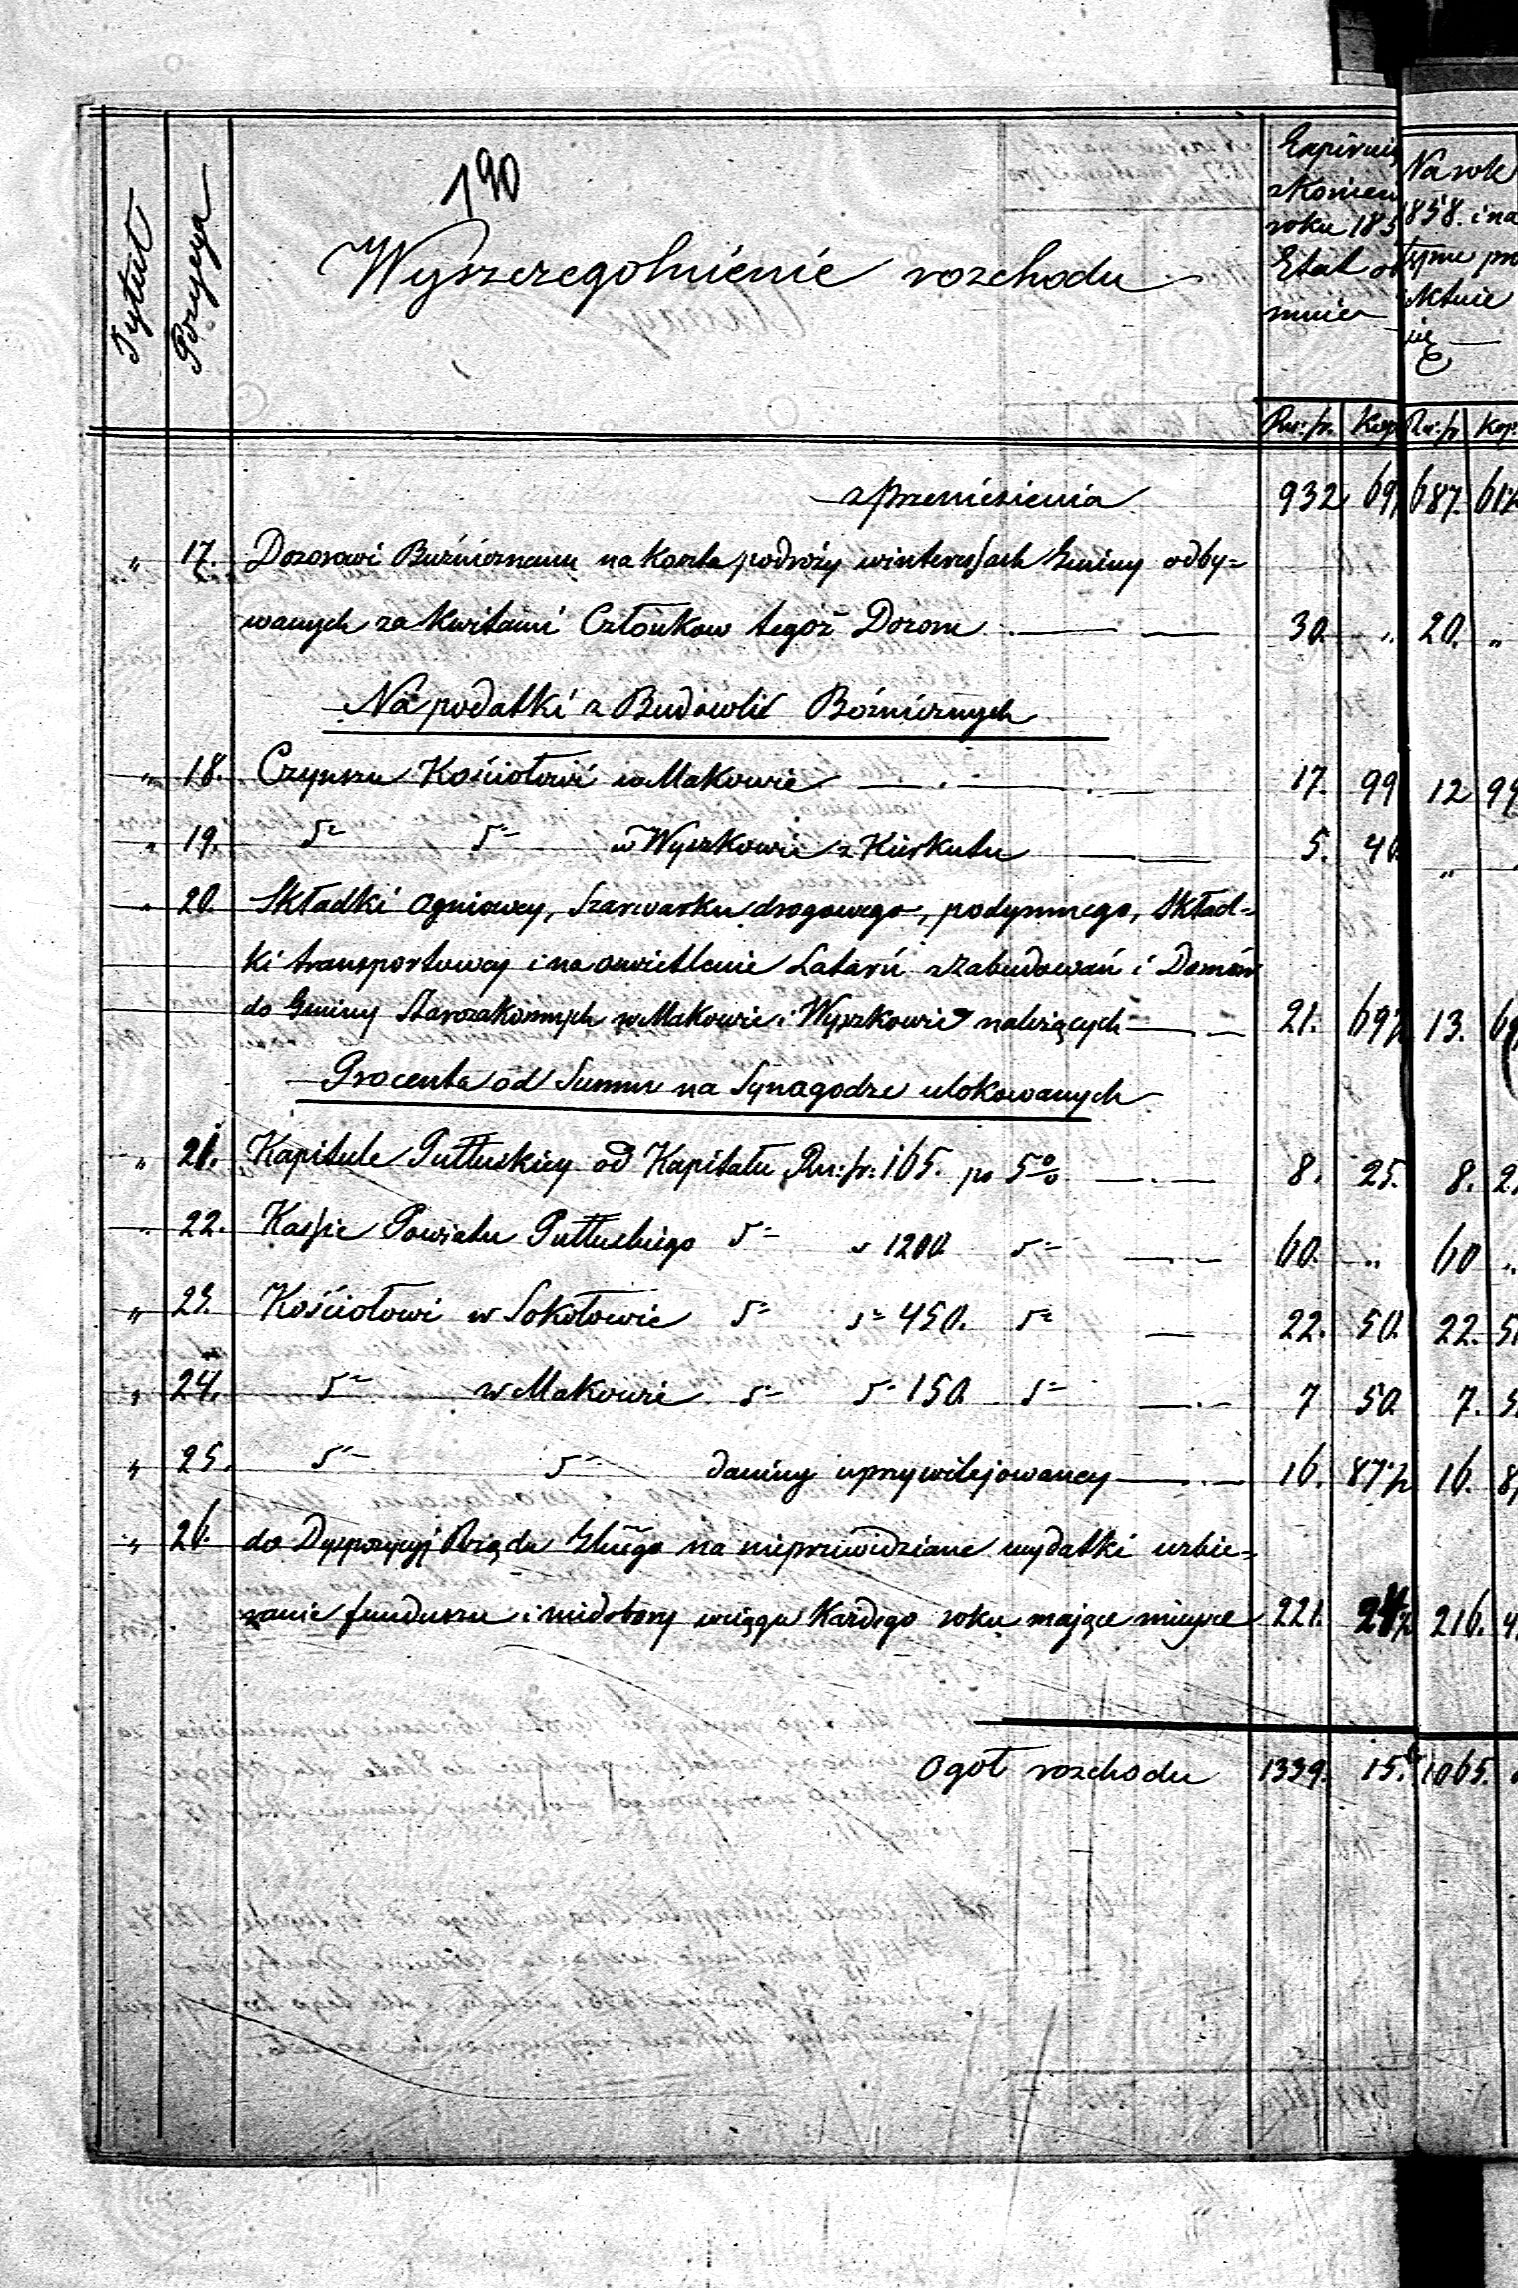 190
Tytuł
Pozycya
Wyszczegolnienie rozchodu
roku 185
Etat
Na rok
1858. i na
Rs: sr. Kop Rs: sr. Kop:
z przeniesienia 932 69 687. 61½
„ 17. Dozorowi Bużnicznemu na Koszta podroży w interessach Gminy odby=
wanych za Kwitami Członkow tegoż Dozoru 30. „ 20. „
Na podatki z Budowli Bóżnicznych
„ 18. Czynszu Kościołowi w Makowie 17. 99 12 99
„ 19. D= D= w Wyszkowie z Kirkutu 5. 40 „
„ 20. Składki Ogniowey, Szarwarku drogowego, podymnego, Skład=
ki transportowey i na oswietlenie Latarń z zabudowań i Domów
do Gminy Starozakonnych w Makowie i Wyszkowie należących 21. 69½ 13. 69
Procenta od Summ na Synagodze ulokowanych
„ 21. Kapitule Pułtuskiey od Kapitału Rs: sr: 165. po 5% 8. 25. 8. 2
„ 22. Kassie Powiatu Pułtuskiego D= „ 1200 D= 60. „ 60 „
„ 23. Kościołowi w Sokołowie D= D= 450. D= 22. 50. 22. 5
„ 24. D= w Makowie D= D= 150. D= 7 50 7. 5
„ 25. D= D= daniny uprzywilejowaney 16. 87½ 16. 8
„ 26. do Dyspozycyi Rządu Głłgo na nieprzewidziane wydatki uzbie=
ranie funduszu i niedobory wciągu Każdego roku mające mieysce 221. 216. 4
Ogół rozchodu 1339. 15. 1065.